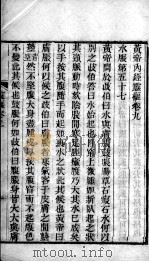 黃帝內經靈樞卷九
水脹第五十七
黃帝問於岐伯曰水與膚脹鼓脹腸覃石瘕石水何以
別之岐伯答曰水始起也目窠上微腫如新臥起之狀
其頸脈動時欬陰股間寒足脛瘇腹乃大其水已成矣
以手按其腹隨手而起如裹水之狀此其候也黃帝曰
膚脹何以候之岐伯曰膚脹者寒氣客於皮膚之間
然不堅腹大身盡腫皮厚按其腹窅而不起腹色
不變此其候也鼓脹何如岐伯曰腹脹身皆大大與膚